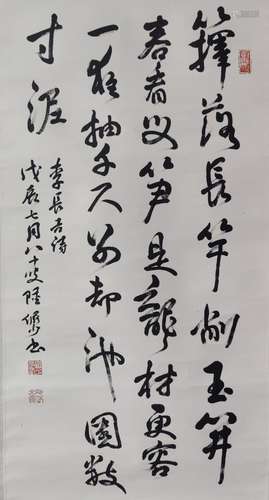 籜落長竿削玉開
君看母筍是龍材更容
一夜抽千尺別却池園數
寸泥
李長吉詩
戊辰七月八十叟陸儼少書